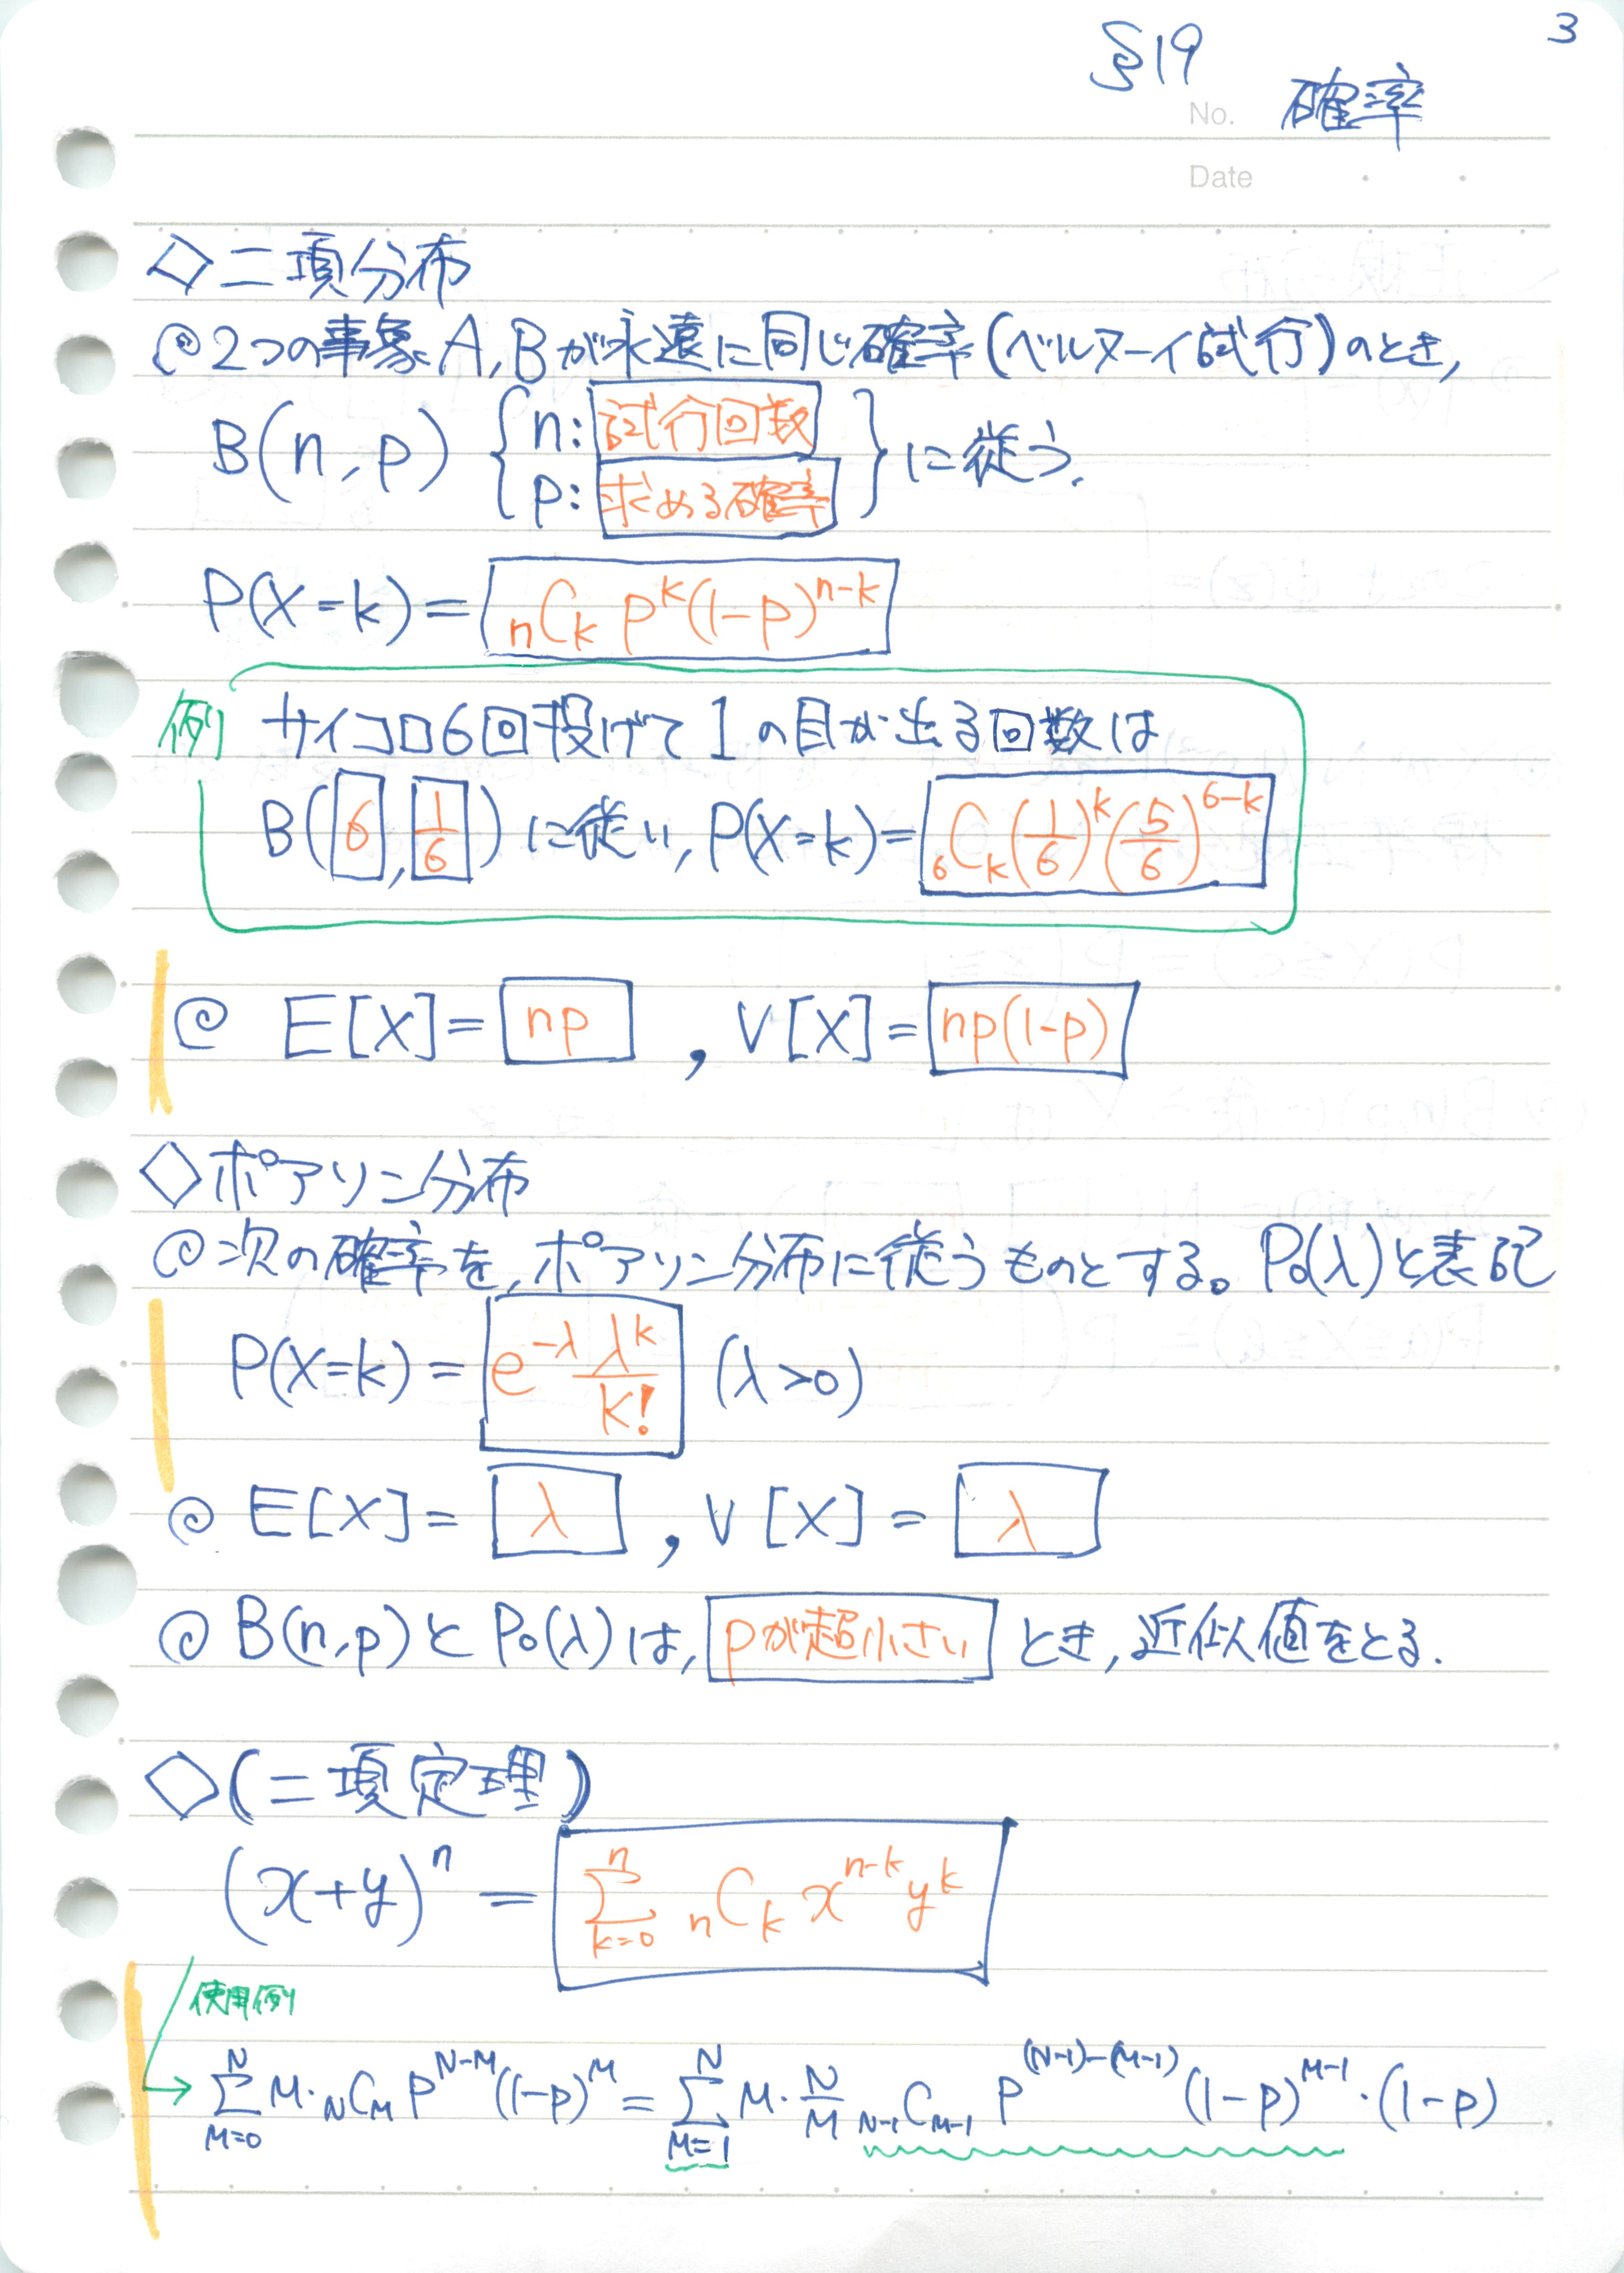 3
§19
No. 確率
Date
◇二項分布
@2つの事象A,Bが永遠に同じ確率(ベルヌーイ試行)のとき,
B(n,p) { n:試行回数
p:求める確率 } に従う.
P(X=k)= nCk p^k(1-p)^{n-k}
例 サイコロ6回投げて1の目が出る回数は
B(6,1/6)に従い,P(X=k)= 6Ck(1/6)^k(5/6)^{6-k}
@ E[X]= np , V[X]= np(1-p)
◇ポアソン分布
@次の確率を,ポアソン分布に従うものとする。Po(λ)と表記
P(X=k) = e^{-λ} λ^k/k! (λ>0)
@ E[X]= λ , V[X] = λ
@ B(n,p)と Po(λ)は, pが超小さい とき,近似値をとる.
◇(二項定理)
(x+y)^n = Σ_{k=0}^{n} nCk x^{n-k}y^k
使用例
→ Σ_{M=0}^{N} M・NCM P^{N-M}(1-p)^M = Σ_{M=1}^{N} M・N/M N-1CM-1 P^{(N-1)-(M-1)}(1-p)^{M-1}・(1-p)